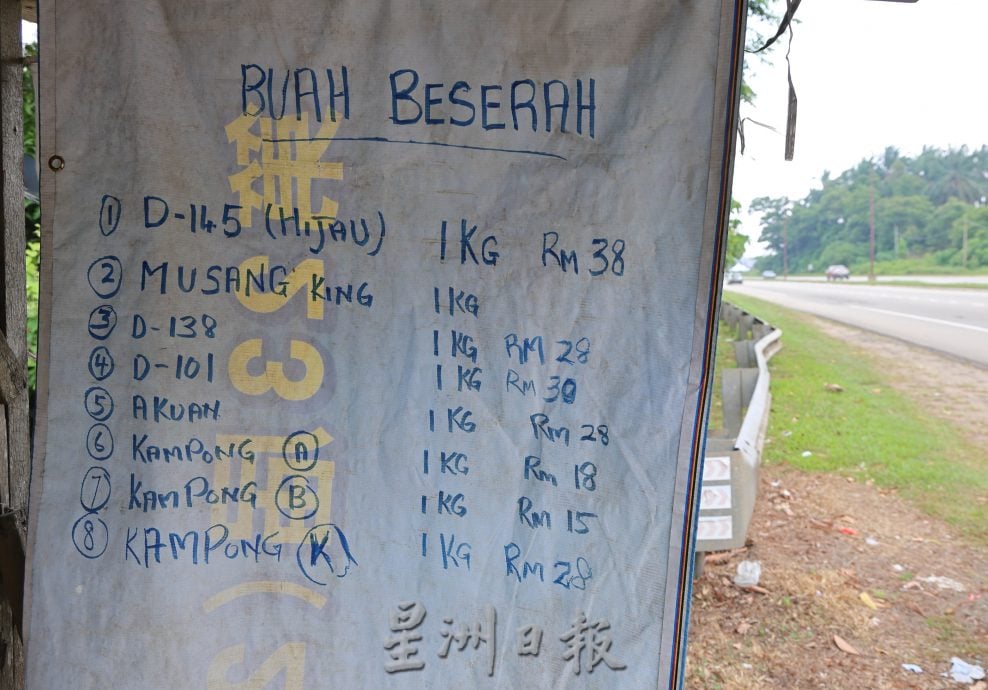 BUAH BESERAH
① D-145 (HIJAU) 1KG RM 38
② MUSANG KING 1KG
③ D-138 1KG RM 28
④ D-101 1KG RM 30
⑤ AKUAN 1KG RM 28
⑥ KAMPONG Ⓐ 1KG RM 18
⑦ KAMPONG Ⓑ 1KG RM 15
⑧ KAMPONG Ⓚ 1KG RM 28
星洲日報